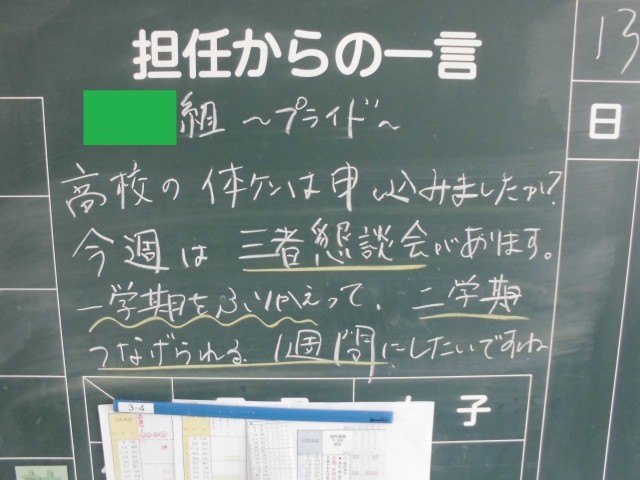 担任からの一言
13
日
組 ～プライド～
高校の体ケンは申し込みましたか?
今週は三者懇談会があります。
一学期をふりかえって、二学期
つなげられる1週間にしたいですね
子
3-4